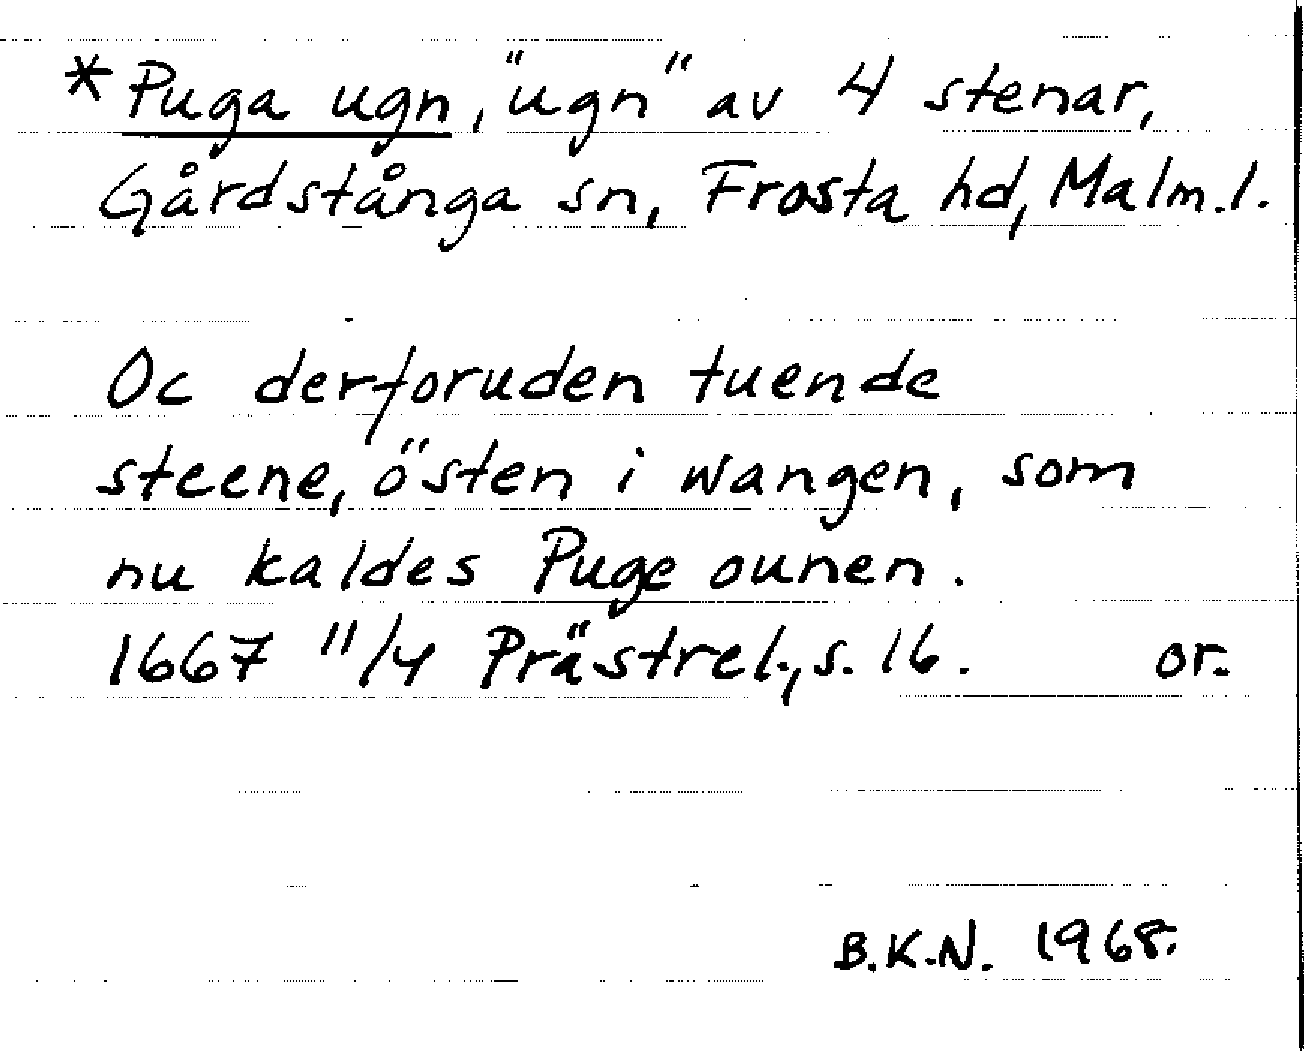 * Puga ugn, "ugn" av 4 stenar,
Gårdstånga sn, Frosta hd, Malm.l.
Oc derforuden tuende
steene, östen i wangen, som
nu kaldes Puge ounen.
1667 11/4 Prästrel., s. 16. or.
B.K.N. 1968.